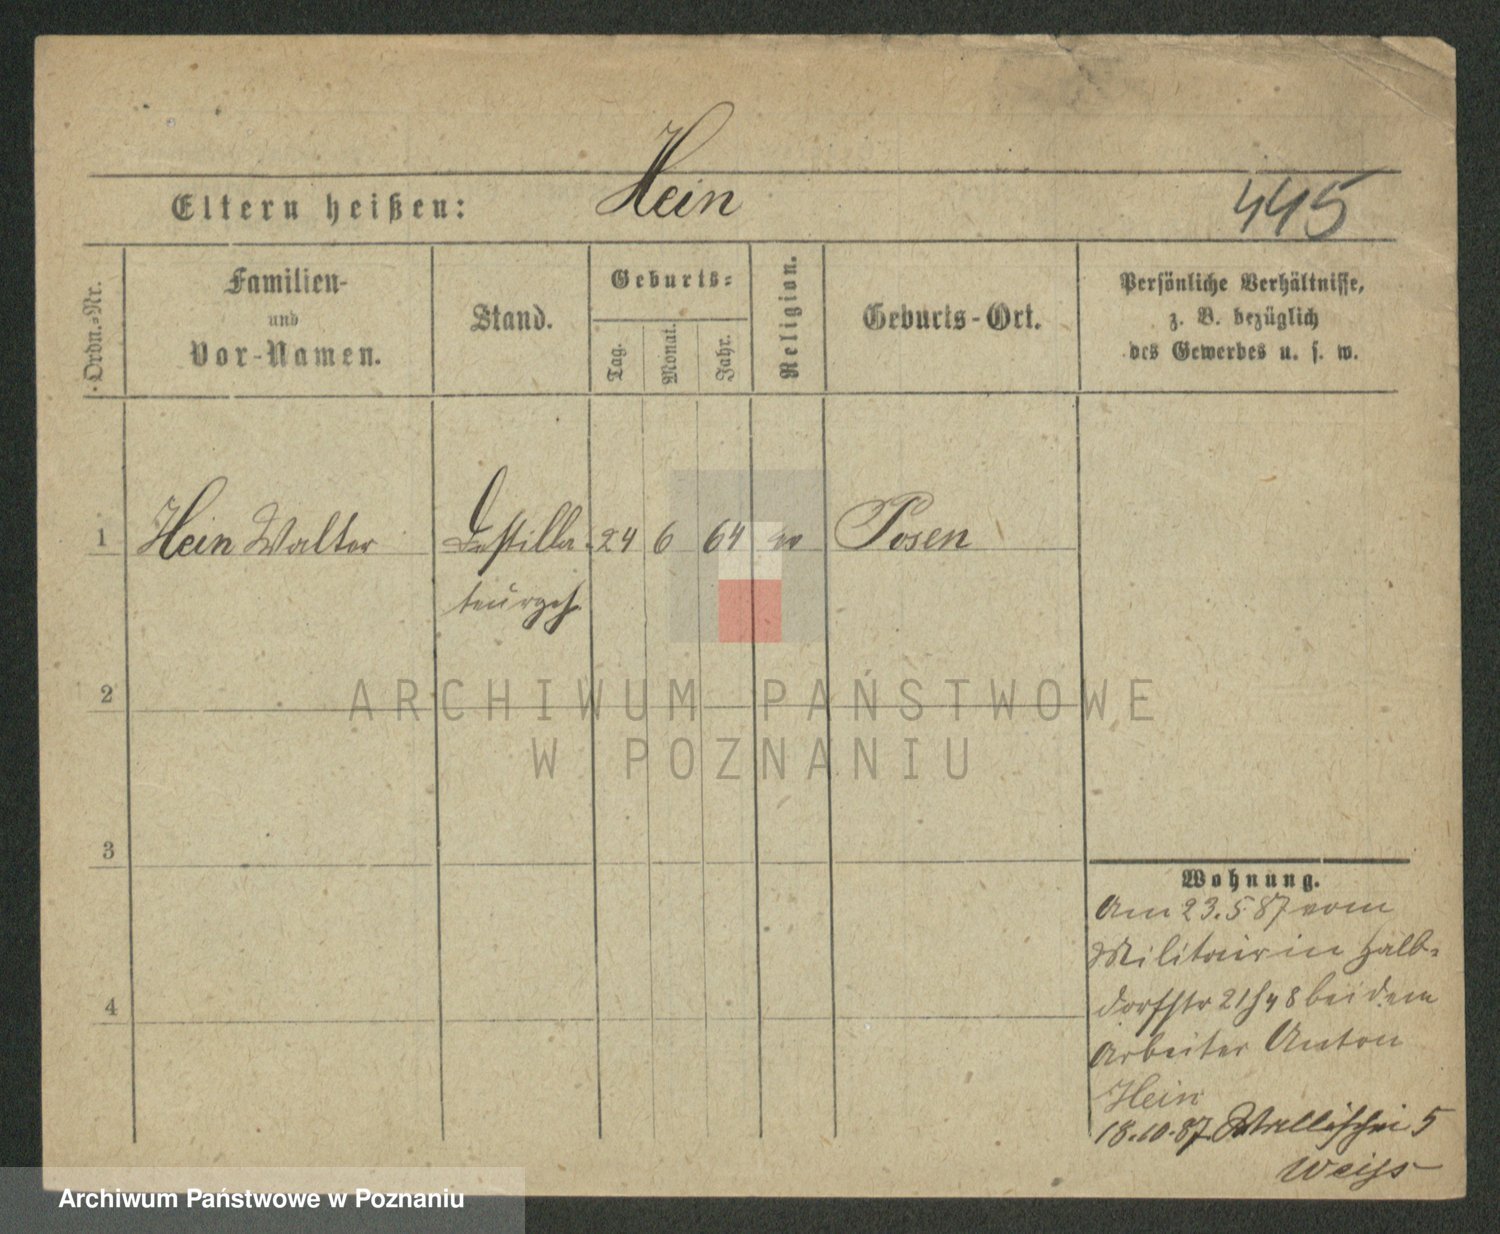 Hein
Eltern heißen:
445
Ordn.-Nr.
Familien-
und
Vor-Namen.
Stand.
Geburts-
Tag.
Monat.
Jahr.
Religion.
Geburts-Ort.
Persönliche Verhältnisse,
z. B. bezüglich
des Gewerbes u. s. w.
1 Hein Walter Destilla- 24 6 64 Posen
teurgeh.
2
3
4
Wohnung.
Am 23.5.87 vom
Militair in Halb-
dorfstr 21 bei dem
Arbeiter Anton
Hein
18.10.87. Wallischei 5
Weiss
ARCHIWUM PAŃSTWOWE
W POZNANIU
Archiwum Państwowe w Poznaniu